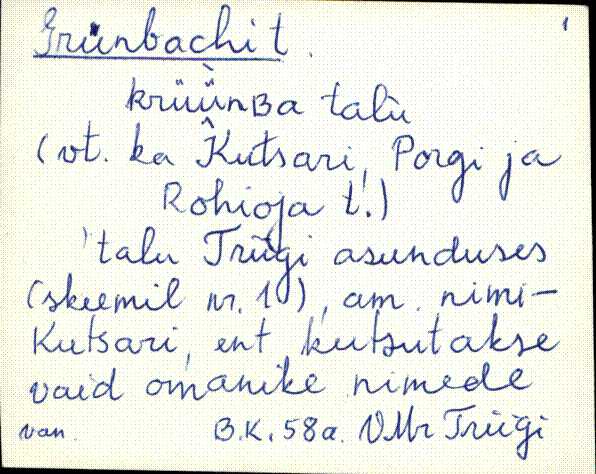 Grünbachi t. 1
krüüǹʙa talu
(vt. ka Kutsari, Porgi ja
Rohioja t.)
'talu Triigi asunduses
(skeemil nr. 10), am. nimi-
Kutsari, ent kutsutakse
vaid omanike nimede
van. B.K. 58a. VMr Triigi